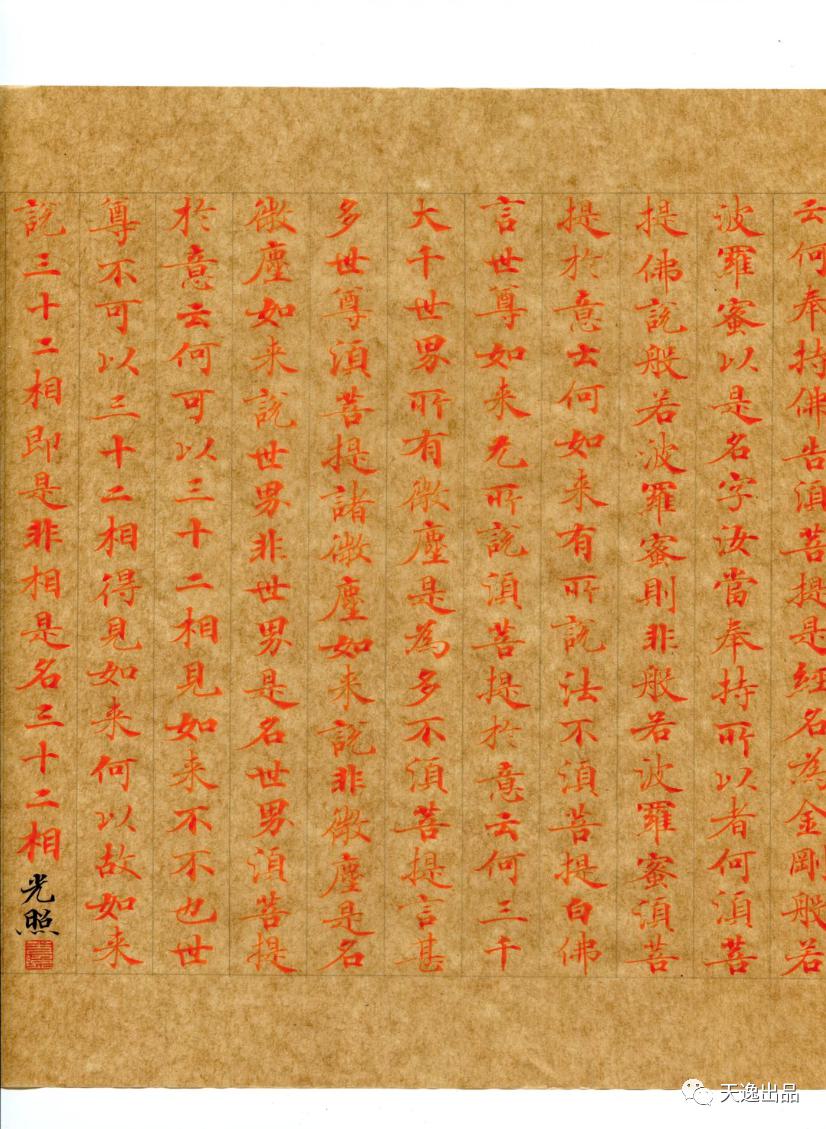 云何奉持佛告湏菩提是經名為金剛般若
波羅蜜以是名字汝當奉持所以者何湏菩
提佛說般若波羅蜜則非般若波羅蜜湏菩
提於意云何如来有所說法不湏菩提白佛
言世尊如来无所說湏菩提於意云何三千
大千世界所有微塵是為多不湏菩提言甚
多世尊湏菩提諸微塵如来說非微塵是名
微塵如来說世界非世界是名世界湏菩提
於意云何可以三十二相見如来不不也世
尊不可以三十二相得見如来何以故如来
說三十二相即是非相是名三十二相
光照
天逸出品